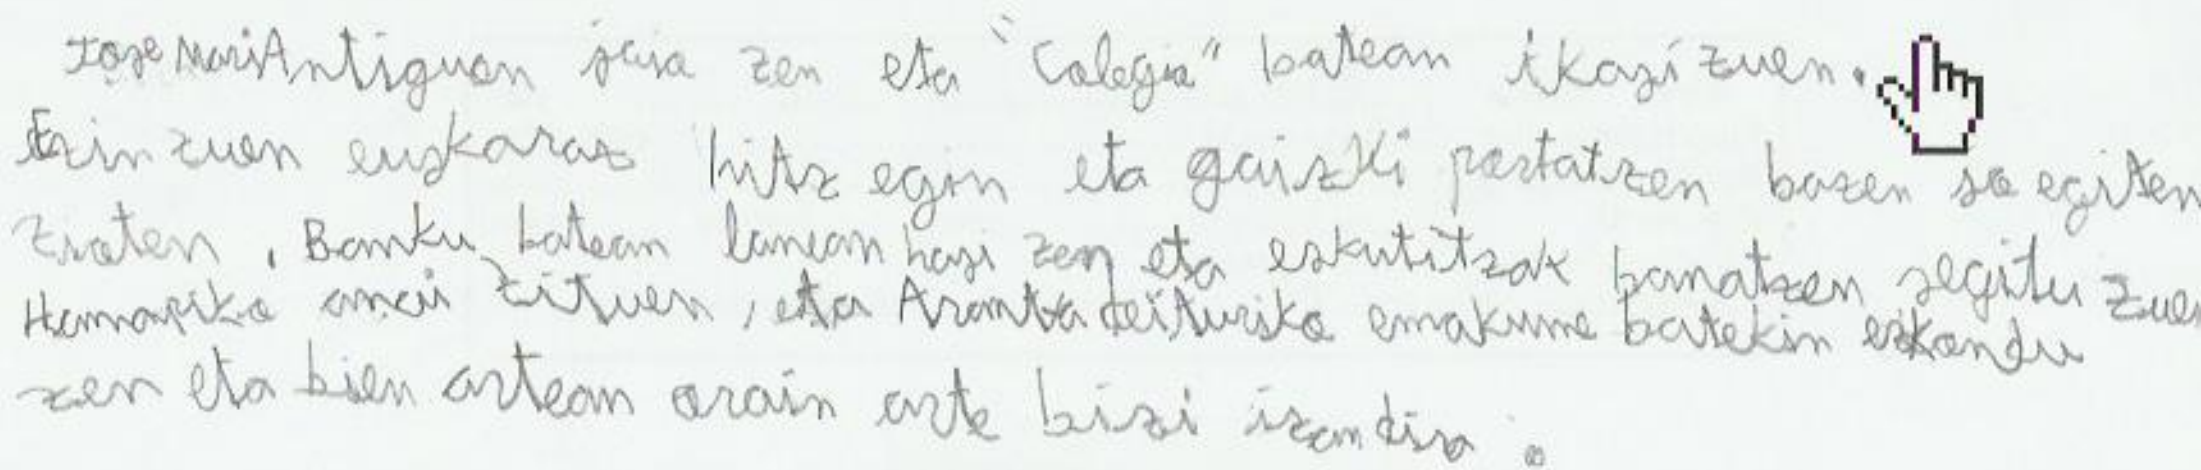 Jose Mari Antiguan jaia zen eta "Colegia" batean ikasi zuen.
Ezin zuen euskaraz hitz egin eta gaizki portatzen bazen jo egiten
zioten. Banku batean lanean hasi zen eta eskutitzak banatzen segitu zuen
Hamapiko anai zituen, eta Arantxa deituriko emakume batekin ezkondu
zen eta bien artean orain arte bizi izan dira.